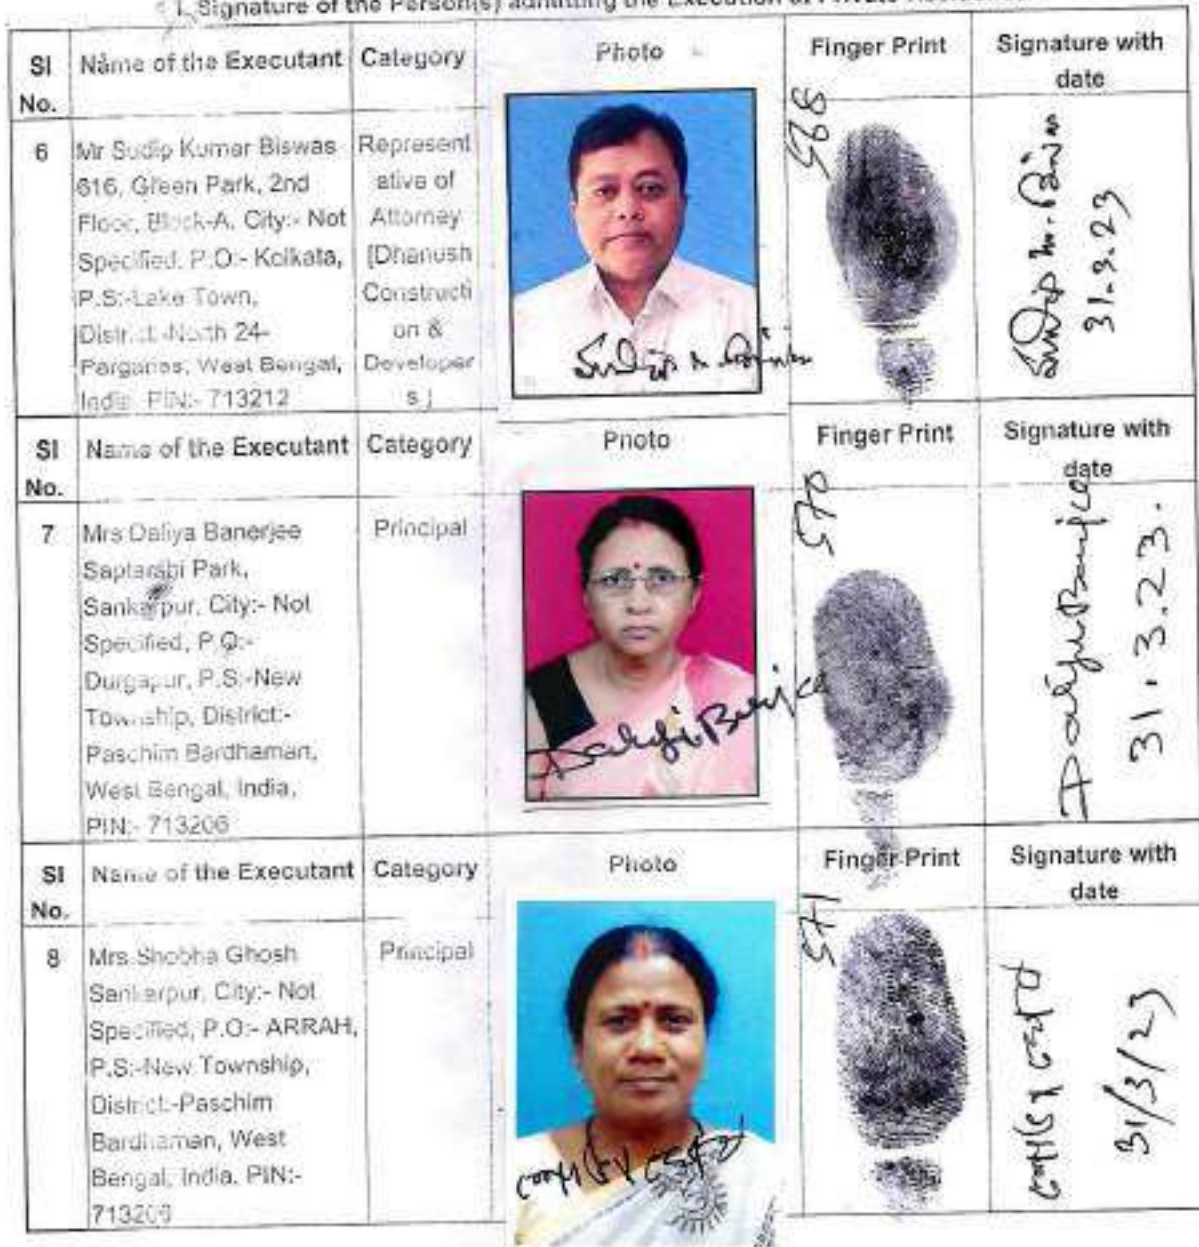 I. Signature of the Person(s) admitting the Execution at Private Residence.
Sl No. Name of the Executant Category Photo Finger Print Signature with date
6
Mr Sudip Kumar Biswas
616, Green Park, 2nd
Floor, Block-A, City:- Not
Specified, P.O:- Kolkata,
P.S:-Lake Town,
District:-North 24-
Parganas, West Bengal,
India, PIN:- 713212
Represent
ative of
Attorney
[Dhanush
Constructi
on &
Developer
s ]
568
31.3.23
Sl No. Name of the Executant Category Photo Finger Print Signature with date
7
Mrs Daliya Banerjee
Saptarshi Park,
Sankarpur, City:- Not
Specified, P.O:-
Durgapur, P.S:-New
Township, District:-
Paschim Bardhaman,
West Bengal, India,
PIN:- 713206
Principal
Daliya Banerjee
570
Daliya Banerjee
31.3.23.
Sl No. Name of the Executant Category Photo Finger Print Signature with date
8
Mrs Shobha Ghosh
Sankarpur, City:- Not
Specified, P.O:- ARRAH,
P.S:-New Township,
District:-Paschim
Bardhaman, West
Bengal, India, PIN:-
713206
Principal
571
31/3/23